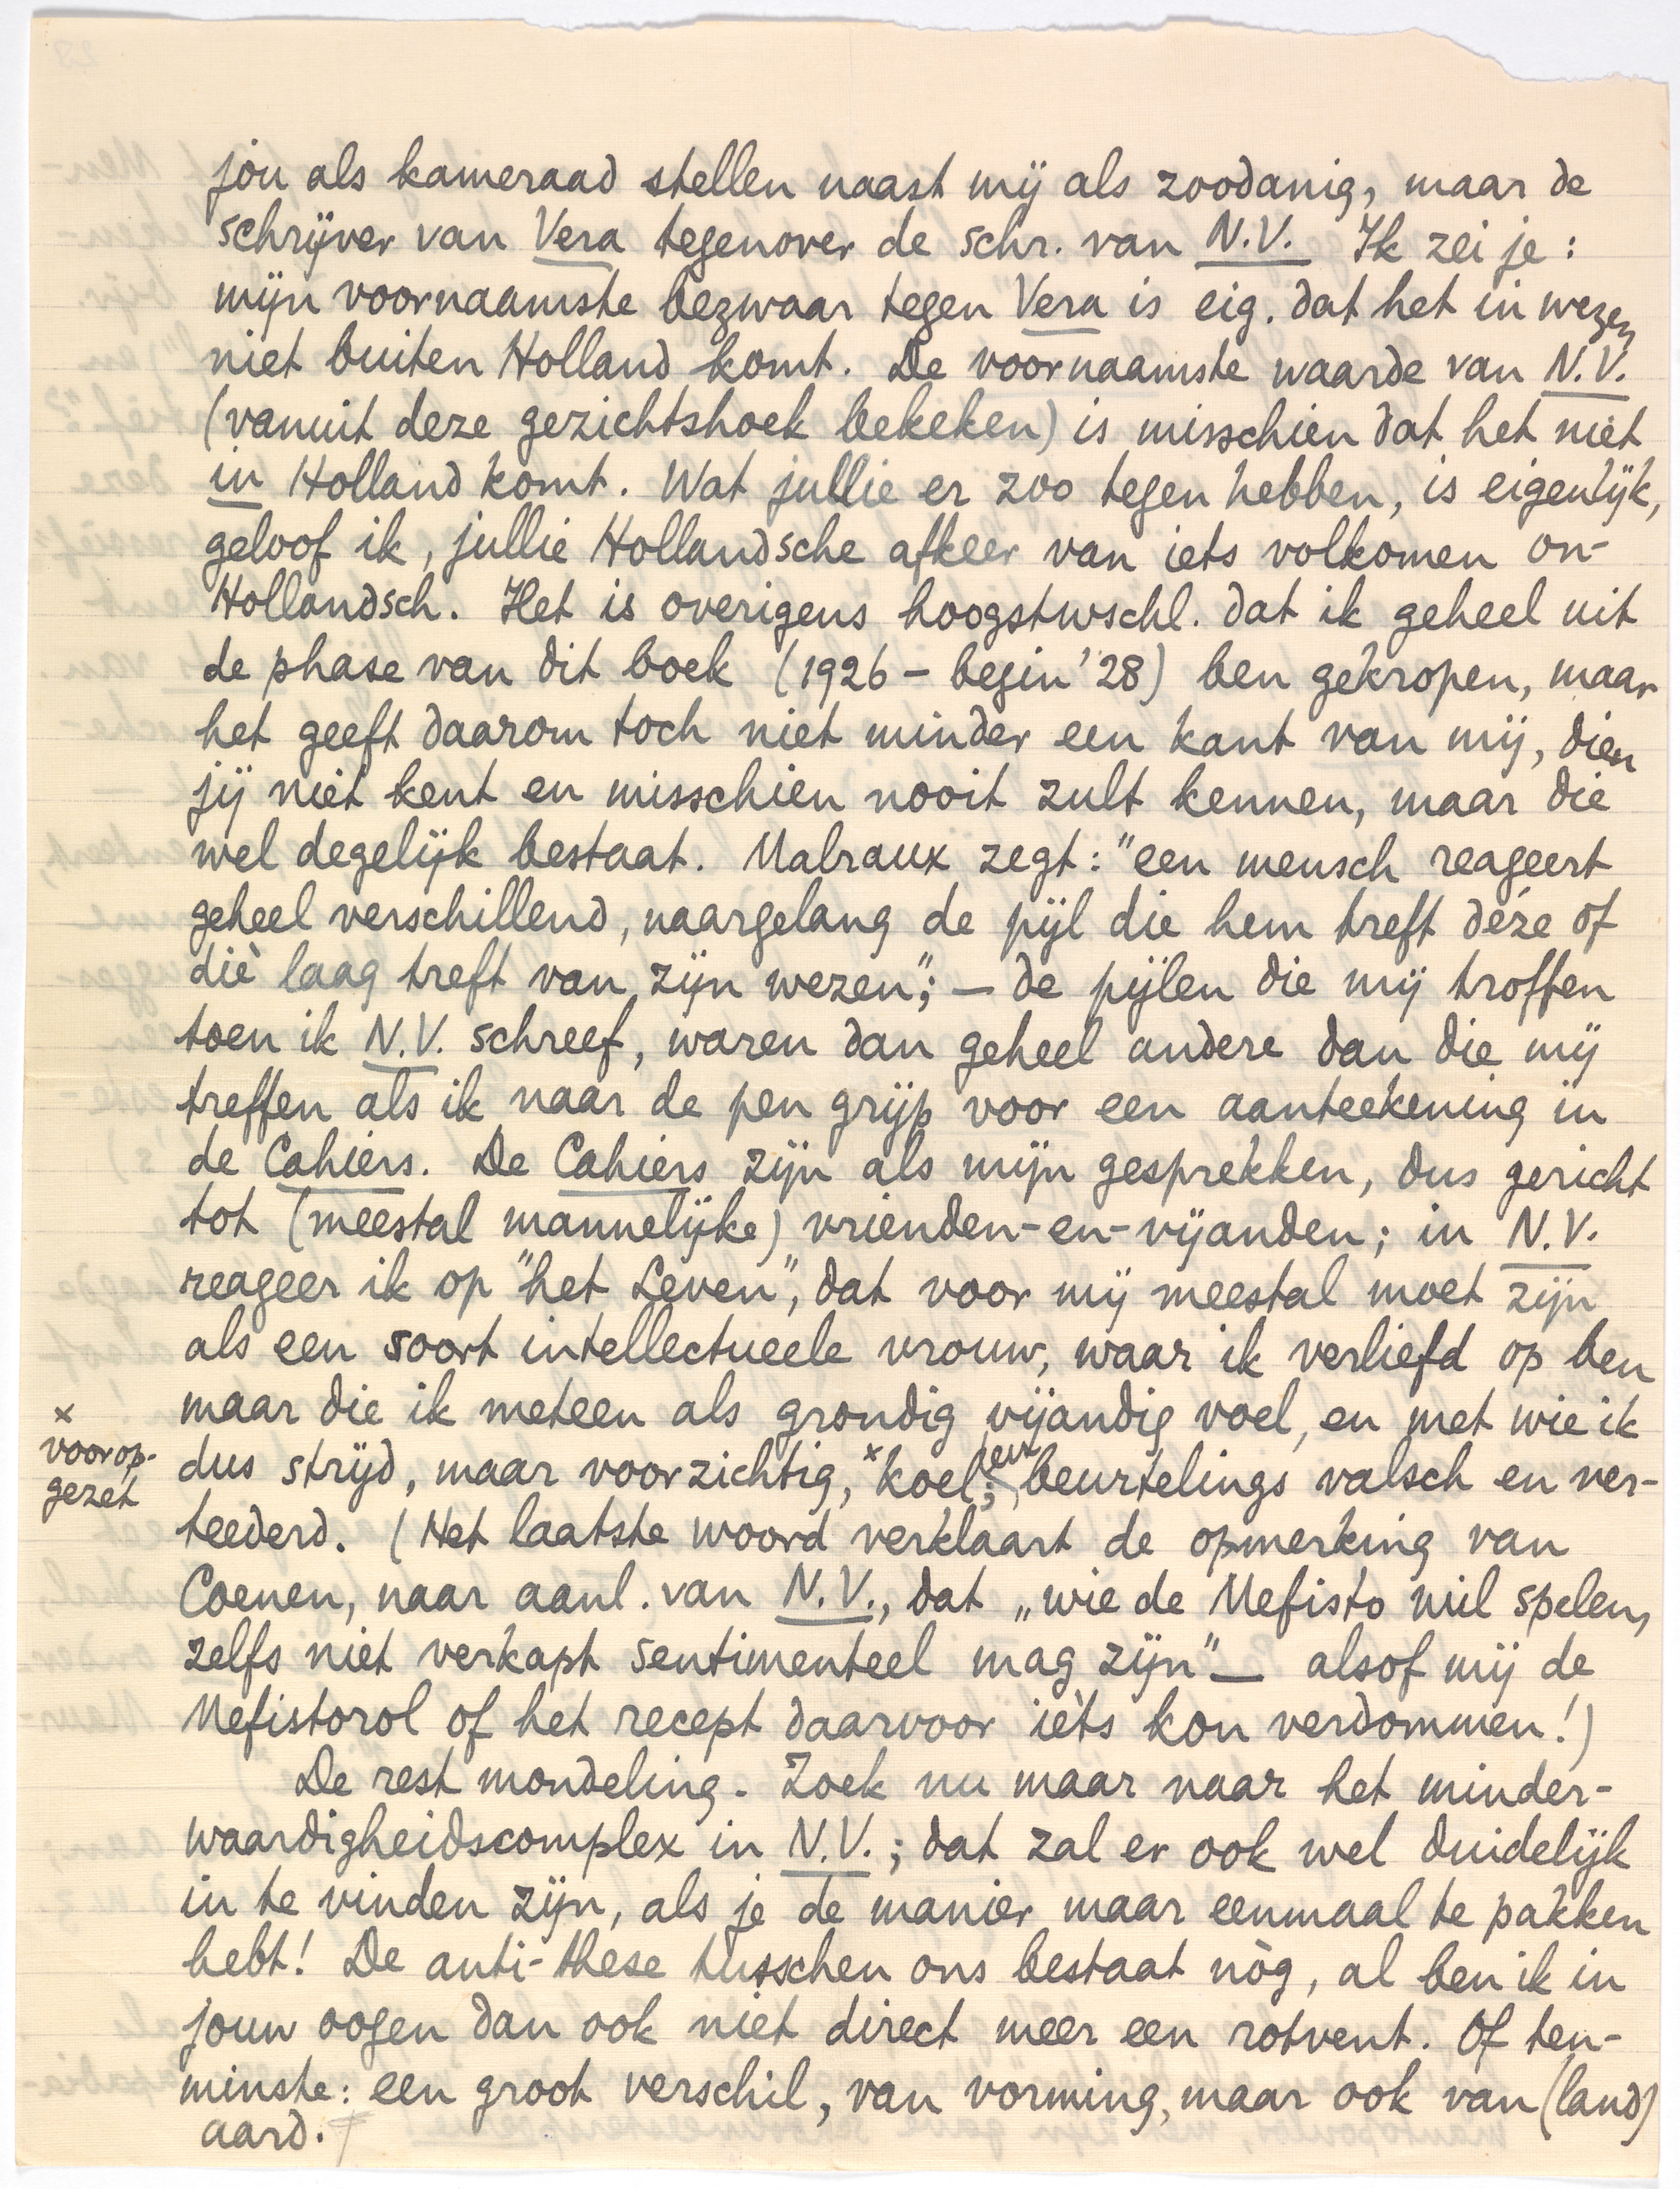 jòu als kameraad stellen naast mij als zoodanig, maar de
schrijver van Vera tegenover de schr. van N.V. Ik zei je:
mijn voornaamste bezwaar tegen Vera is eig. dat het in wezen
niet buiten Holland komt. De voornaamste waarde van N.V.
(vanuit deze gezichtshoek bekeken) is misschien dat het niet
in Holland komt. Wat jullie er zoo tegen hebben, is eigenlijk,
geloof ik, jullie Hollandsche afkeer van iets volkomen on-
Hollandsch. Het is overigens hoogstwschl. dat ik geheel uit
de phase van dit boek (1926 – begin '28) ben gekropen, maar
het geeft daarom toch niet minder een kant van mij, dien
jij niet kent en misschien nooit zult kennen, maar die
wel degelijk bestaat. Malraux zegt: "een mensch reageert
geheel verschillend, naargelang de pijl die hem treft déze of
diè laag treft van zijn wezen"; — de pijlen die mij troffen
toen ik N.V. schreef, waren dan geheel andere dan die mij
treffen als ik naar de pen grijp voor een aanteekening in
de Cahiers. De Cahiers zijn als mijn gesprekken, dus gericht
tot (meestal mannelijke) vrienden-en-vijanden; in N.V.
reageer ik op "het Leven", dat voor mij meestal moet zijn
als een soort intellectueele vrouw, waar ik verliefd op ben
maar die ik meteen als grondig vijandig voel, en met wie ik
dus strijd, maar voorzichtig, x koel, en beurtelings valsch en ver-
x
voorop-
gezet
teederd. (Het laatste woord verklaart de opmerking van
Coenen, naar aanl. van N.V., dat „wie de Mefisto wil spelen,
zelfs niet verkapt sentimenteel mag zijn" — alsof mij de
Mefistorol of het recept daarvoor ièts kon verdommen!)
De rest mondeling. Zoek nu maar naar het minder-
waardigheidscomplex in N.V.; dat zal er ook wel duidelijk
in te vinden zijn, als je de manier maar eenmaal te pakken
hebt! De anti-these tusschen ons bestaat nòg, al ben ik in
jouw oogen dan ook niet direct meer een rotvent. Of ten-
minste: een groot verschil, van vorming, maar ook van (land)
aard.